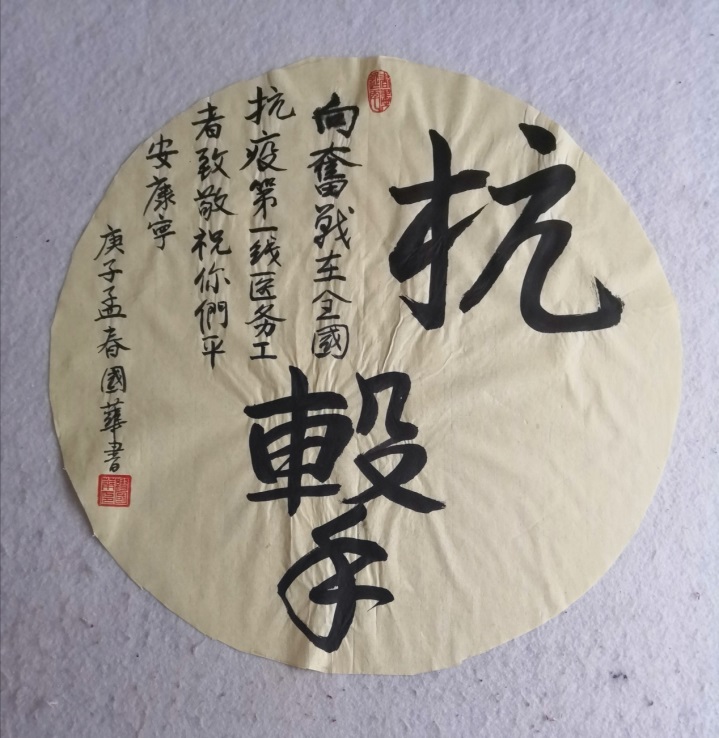 抗
擊
向奮戰在全國
抗疫第一线医务工
者致敬祝你們平
安康寧
庚子孟春國華書